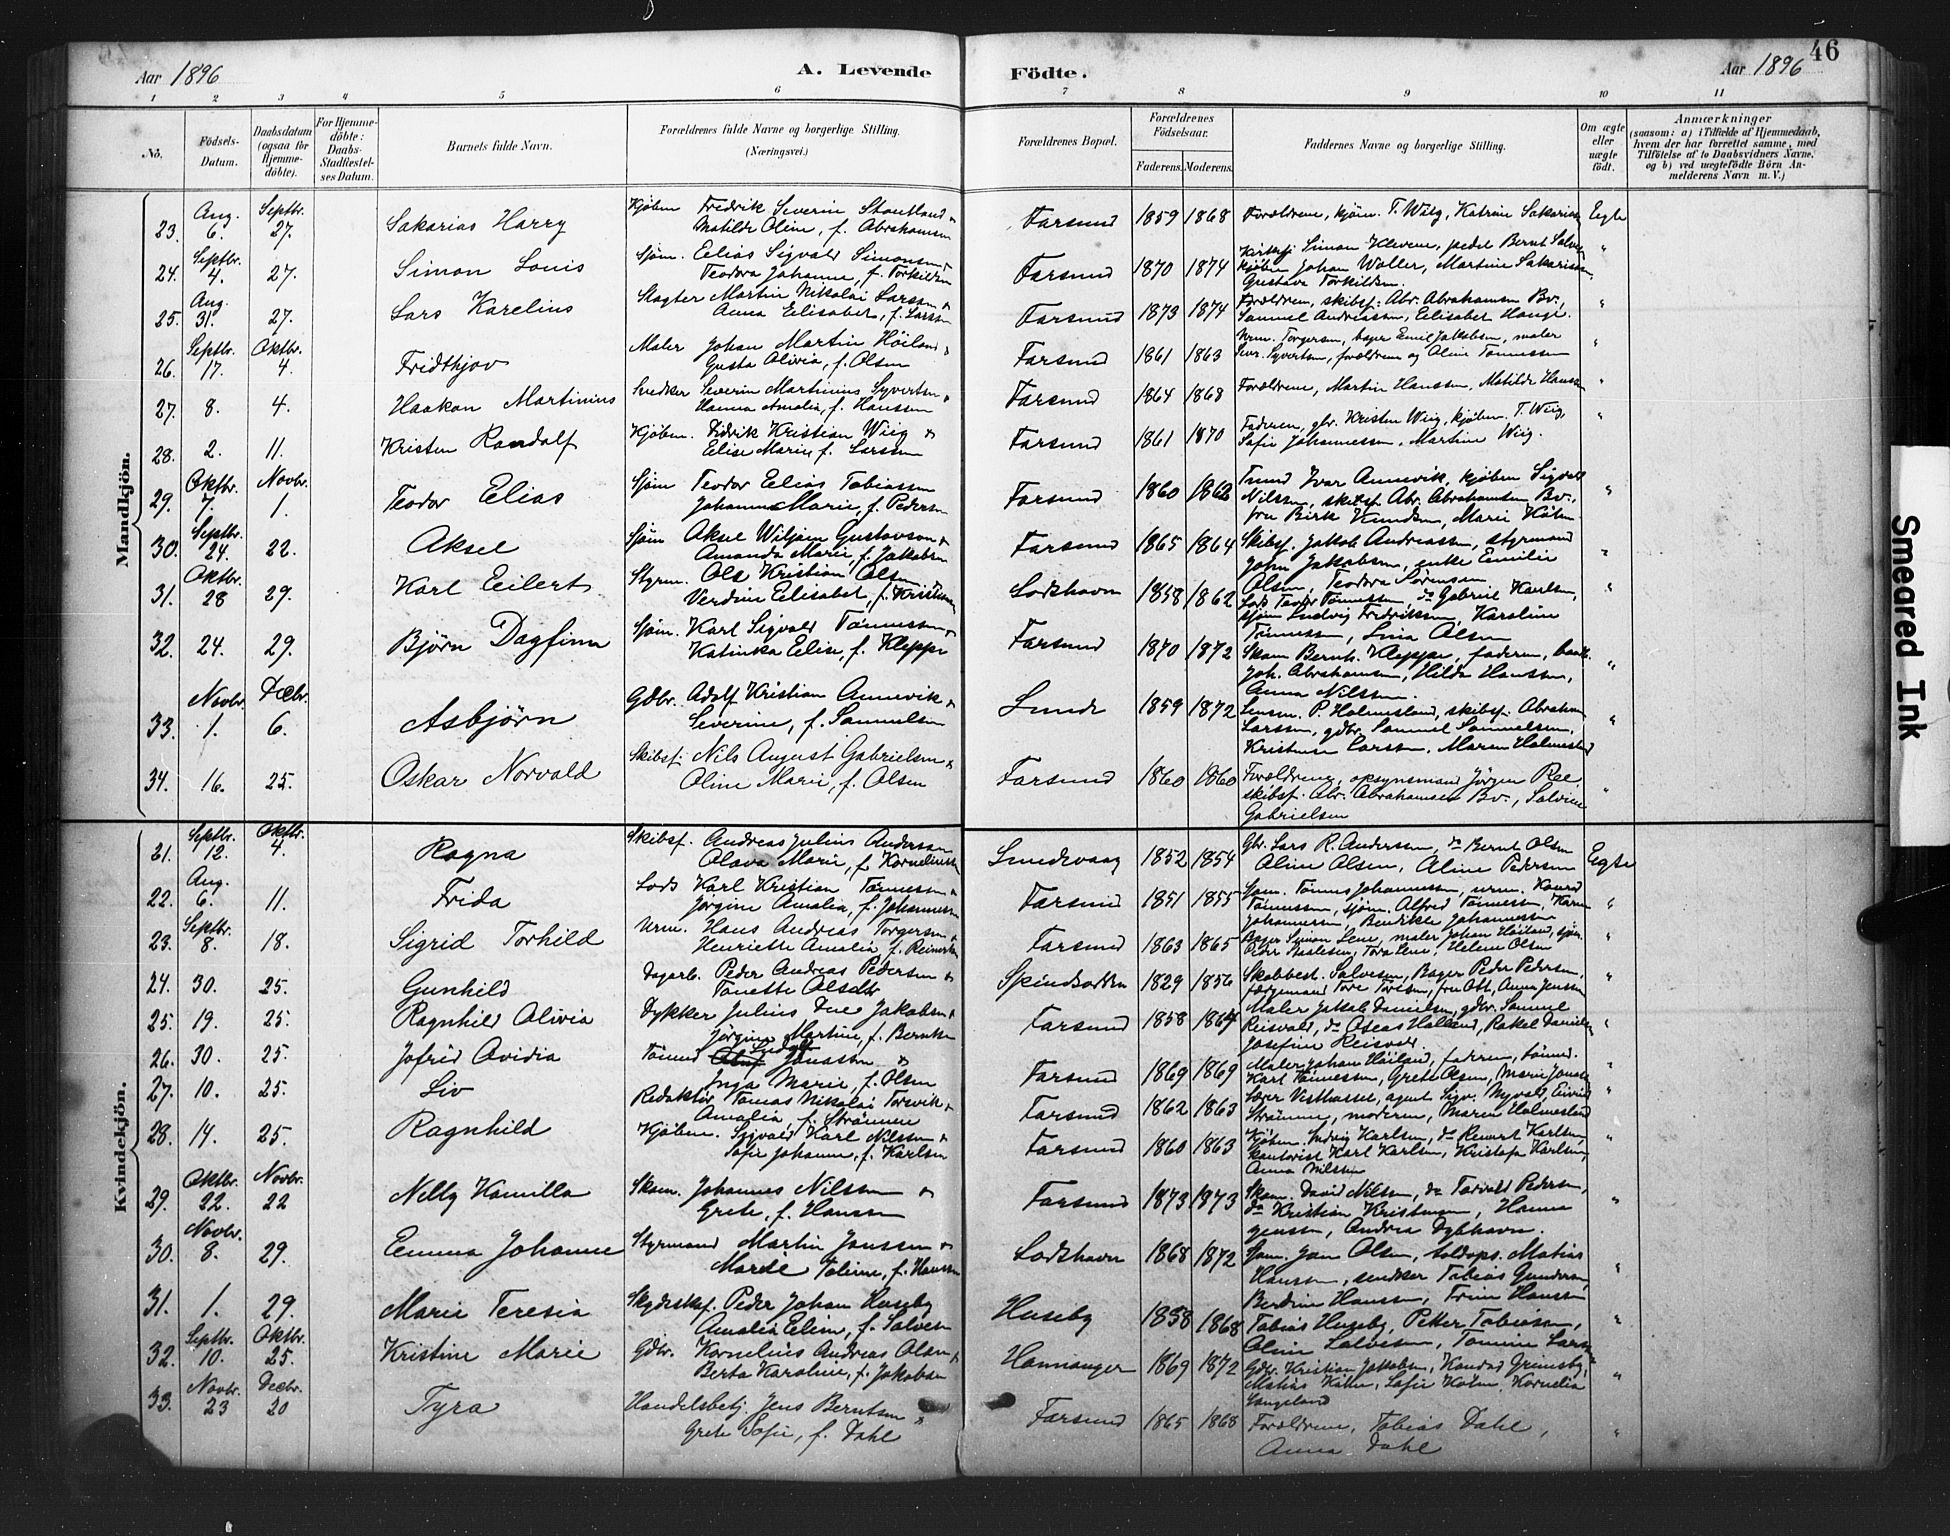 46
Aar 1896
A. Levende
Födte.
Aar 1896
1 2 3 4 5 6 7 8 9 10 11
No.
Födsels-Datum.
Daabsdatum (ogsaa for Hjemmedöbte).
For Hjemmedöbte: Daabs-Stadfæstelses Datum.
Barnets fulde Navn.
Forældrenes fulde Navne og borgerlige Stilling.
(Næringsvei.)
Forældrenes Bopæl.
Forældrenes Födselsaar.
Faderens. Moderens.
Faddernes Navne og borgerlige Stilling.
Om ægte eller uægte födt.
Anmærkninger
(saasom: a) i Tilfælde af Hjemmedaab, hvem der har forrettet samme, med Tilföielse af to Daabsvidners Navne, og b) ved uægtefödte Börn Anmelderens Navn m. V.)
Mandkjön.
23. Aug. 6. Septbr. 27. Sakarias Harry
Kjöbm. Fredrik Severin Stoutland &
Matilde Oline, f. Abrahamsen
Farsund 1859 1868
Forældrene, kjöm. T. Wiig, Katrine Sakarias Egte
24. Septbr. 4. 27. Simon Louis
Sjöm. Elias Sigvald Simonsen &
Teodora Johanne, f. Torkildsen
Farsund 1870 1874
Simon Klevene, pedel Bernt Salve
Johan Waller, Martine Sakariasen, "
Gustava Torkildsen.
25. Aug. 31. 27. Lars Karelius
Slagter Martin Nikolai Larssen &
Anna Elisabet, f. Larssen
Farsund 1873 1874
Forældrene, skibsf. Abr. Abrahamsen Bv.,
Samuel Andreassen, Elisabet Hauge. "
26. Septbr. 17. Oktbr. 4. Fridthjov
Maler Johan Martin Höiland &
Gusta Olivia, f. Olsen
Farsund 1861 1863
Urm. Torgersen, bager Emil Jakobsen, maler
Sever. Syvertsen, forældrene og Oline Tönnessen "
27. 8. 4. Haakon Martinius
Snedker Severin Martinius Syvertsen &
Hanna Amalia, f. Hanssen
Farsund 1864 1868
Forældrene, Martin Hanssen, Matilde Hanssen "
28. 2. 11. Kristen Randolf
Kjöbm. Didrik Kristian Wiig &
Elise Marie, f. Larssen
Farsund 1861 1870
Faderen, gbr. Kristen Wiig, kjöbm. T. Wiig,
Sofie Johannessen, Martine Wiig. "
29. Oktbr. 7. Novbr. 1. Teodor Elias
Sjöm Teodor Elias Tobiassen
Johanne Marie, f. Pedersen
Farsund 1860 1862
Ivar Annevik, kjöbm Sigvald
Nilssen, skibsf. Abr. Abrahamsen Bv.,
fru Birk Knudsen, Marie Holm "
30. Septbr. 24. 22. Aksel
Sjöm Aksel Wiljam Gustavson &
Amanda Marie, f. Jakobsen
Farsund 1865 1864
Skibsf. Jakob Andreassen, styrmand
John Jakobsen, enke Emilie
Olsen, Teodora Sörensen "
31. Oktbr. 28 29. Karl Eilert
Styrm. Ole Kristian Olsen &
Verdine Elisabet, f. Kristensen
Lodshavn 1858 1862
Lods Teodor Tönnessen, do Gabriel Karlsen,
sjöm Ludvig Fredriksen, Karoline
Tönnessen, Lina Olsen "
32. 24. 29. Björn Dagfinn
Sjöm. Karl Sigvald Tönnessen &
Katinka Elise, f. Kleppe
Farsund 1870 1872
Skom Bernh. Kleppe, faderen,
Joh. Abrahamsen, Hilda Hanssen,
Anna Nilssen. "
33. Novbr. 1. Decbr. 6. Asbjörn
Gdbr. Adolf Kristian Annevik &
Severine, f. Samuelsen
Lunde 1859 1872
P. Holmesland, skibsf. Abraham
Larssen, gdbr Samuel Samuelsen,
Kristense Larssen, Maren Holmesland "
34. 16. 25. Oskar Norvald
Skibsf. Nils August Gabrielsen &
Oline Marie, f. Olsen
Farsund 1860 1860
Forældrene, opsynsmand Jörgen Ree
skibsf. Abr. Abrahamsen Bv., Salvine
Gabrielsen "
Kvindekjön.
21. Septbr. 12. Oktbr. 4. Ragna
Skibsf. Andreas Julius Anderssen
Olava Marie, f. Korneliussen
Lundevaag 1852 1854
Gbr. Lars R. Anderssen, do Bernt Olsen
Oline Olsen, Aline Pedersen Egte
22. Aug. 6. 11. Frida
Lods Karl Kristian Tönnessen &
Jörgine Amalia, f. Johannessen
Farsund 1851 1855
Sjöm. Tönnes Johannessen, urm. Konrad
Tönnessen, sjöm. Alfred Tönnessen, Karen
Johannessen, Bendikte Johannessen "
23. Septbr. 8. 18. Sigrid Torhild
Urm. Hans Andreas Torgersen &
Henriette Amalia, f. Reinertsen
Farsund 1863 1865
Bager Simon Lene, maler Johan Höiland, sjöm.
Peder Rasmussen, Tora Lene, Helene Olsen "
24. 30. 25. Gunhild
Dagarb. Peder Andreas Pedersen &
Tonette Olsdtr
Spindsodden 1829 1856
Skobbest. Salvesen, Bager Peder Pedersen,
Tore Torisen, fru Ott, Anna Jenssen "
25. 19. 25. Ragnhild Olivia
Dykker Julius Due Jakobsen &
Jörgine Martine, f. Berntsen
Farsund 1858 1864
Maler Jakob Danielsen, gdbr. Samuel
Reisvold, do Oseas Halland, Rakel Danielsen
Josefine Reisvold. "
26. 30. 25. Jofrid Ovidia
Jonassen &
Inga Marie, f. Olsen
Farsund 1869 1869
Maler Johan Höiland, faderen, tömmd.
Karl Tönnessen, Grete Olsen, Marie Jonassen "
27. 10. 25. Liv
Redaktör Tomas Nikolai Torsvik &
Amalia, f. Strömme
Farsund 1862 1863
Lærer Vesthassel, agent Sigv. Nyvold, Eivind
Strömme, moderen, Maren Holmesland "
28. 14. 25. Ragnhild
Kjöbm. Sigvald Karl Nilssen &
Sofie Johanne, f. Karlsen
Farsund 1860 1863
Kjöbm. Ludvig Karlsen, do Reinert Karlsen,
kontorist Karl Karlsen, Kristofa Karlsen,
Anna Nilssen "
29. Oktbr. 22. Novbr. 22 Nelly Kamilla
Skom. Johannes Nilssen &
Grete, f. Hanssen
Farsund 1873 1873
Skom. David Nilsen, do Torvald Pedersen,
do Kristian Kristensen, Hanna
Jenssen, Andrea Dybhavn. "
30. Novbr. 8. 29. Emma Johanne
Styrmand Martin Jonssen &
Marie Toline, f. Hanssen
Lodshavn 1868 1872
Sjöm. Jon Olsen, toldops. Matias
Hanssen, snedker Tobias Gundersen,
Berdine Hanssen, Trine Hanssen "
31. 1. 29. Marie Teresia
Skydsskf. Peder Johan Huseby
Amalia Eline, f. Salvesen
Huseby 1858 1868
Tobias Huseby, Petter Tobiasen,
Oline Salvesen, Tomine Larssen "
32. Septbr. 10. Oktbr. 25. Kristine Marie
Gdbr. Kornelius Andreas Olsen &
Berta Karoline, f. Jakobsen
Hananger 1869 1872
Gdbr. Kristian Jakobsen, Konrad Grimsby,
Matias Holm, Sofie Holm, Kornelia
Langeland "
33. Novbr. 23 Decbr. 20 Tyra
Handelsbetj. Jens Berntsen &
Grete Sofie, f. Dahl
Farsund 1865 1868
Forældrene, Tobias Dahl,
Anna Dahl "
Smeared Ink